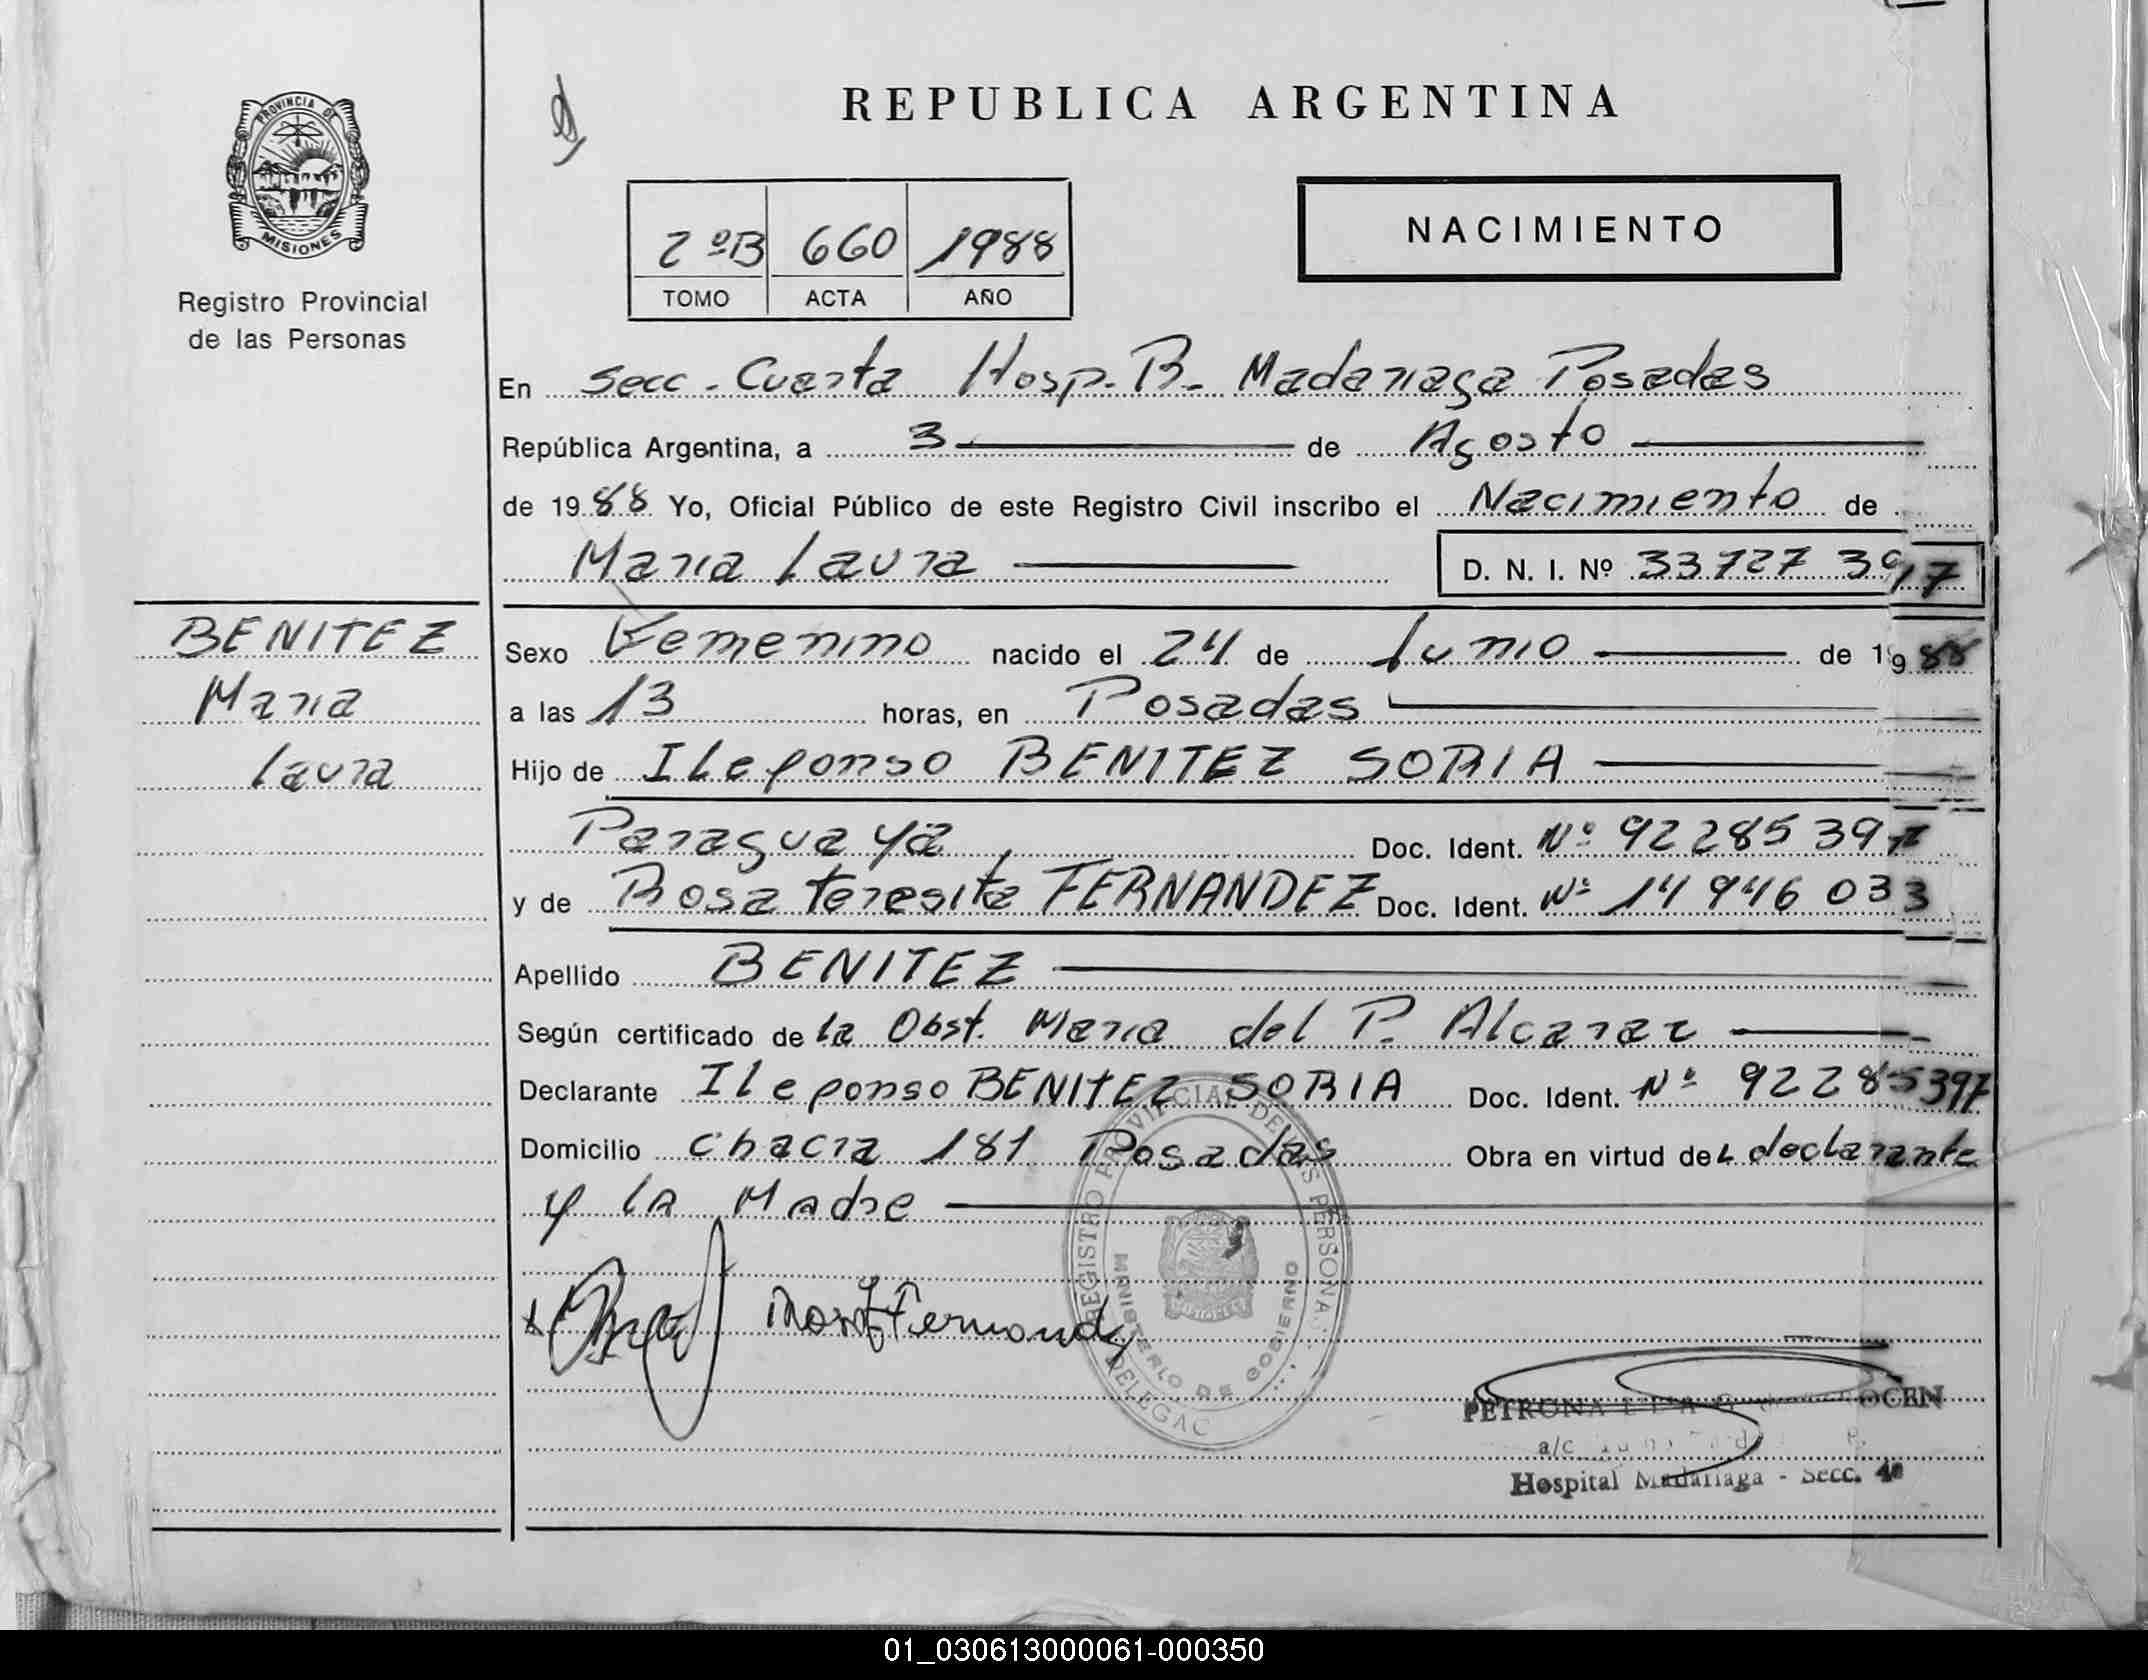 PROVINCIA DE
MISIONES
Registro Provincial
de las Personas
REPUBLICA ARGENTINA
2ºB 660 1988
TOMO ACTA AÑO
NACIMIENTO
En Secc. Cuarta Hosp. R. Madariaga Posadas
República Argentina, a 3 de Agosto
de 1988 Yo, Oficial Público de este Registro Civil inscribo el Nacimiento de
Maria Laura D. N. I. Nº 33727397
BENITEZ
Maria
Laura
Sexo Femenino nacido el 24 de Junio de 1988
a las 13 horas, en Posadas
Hijo de Ilefonso BENITEZ SORIA
Paraguaya Doc. Ident. Nº 92285397
y de Rosa Teresita FERNANDEZ Doc. Ident. Nº 14946033
Apellido BENITEZ
Según certificado de la Obst. Maria del P. Alcaraz
Declarante Ilefonso BENITEZ SORIA Doc. Ident. Nº 92285397
Domicilio chacra 181 Posadas Obra en virtud del declarante
y la Madre
REGISTRO PROVINCIAL DE LAS PERSONAS
MINISTERIO DE GOBIERNO
MISIONES
DELEGAC
PETRONA
a/c
Hospital Madariaga - Secc. 4ª
01_030613000061-000350